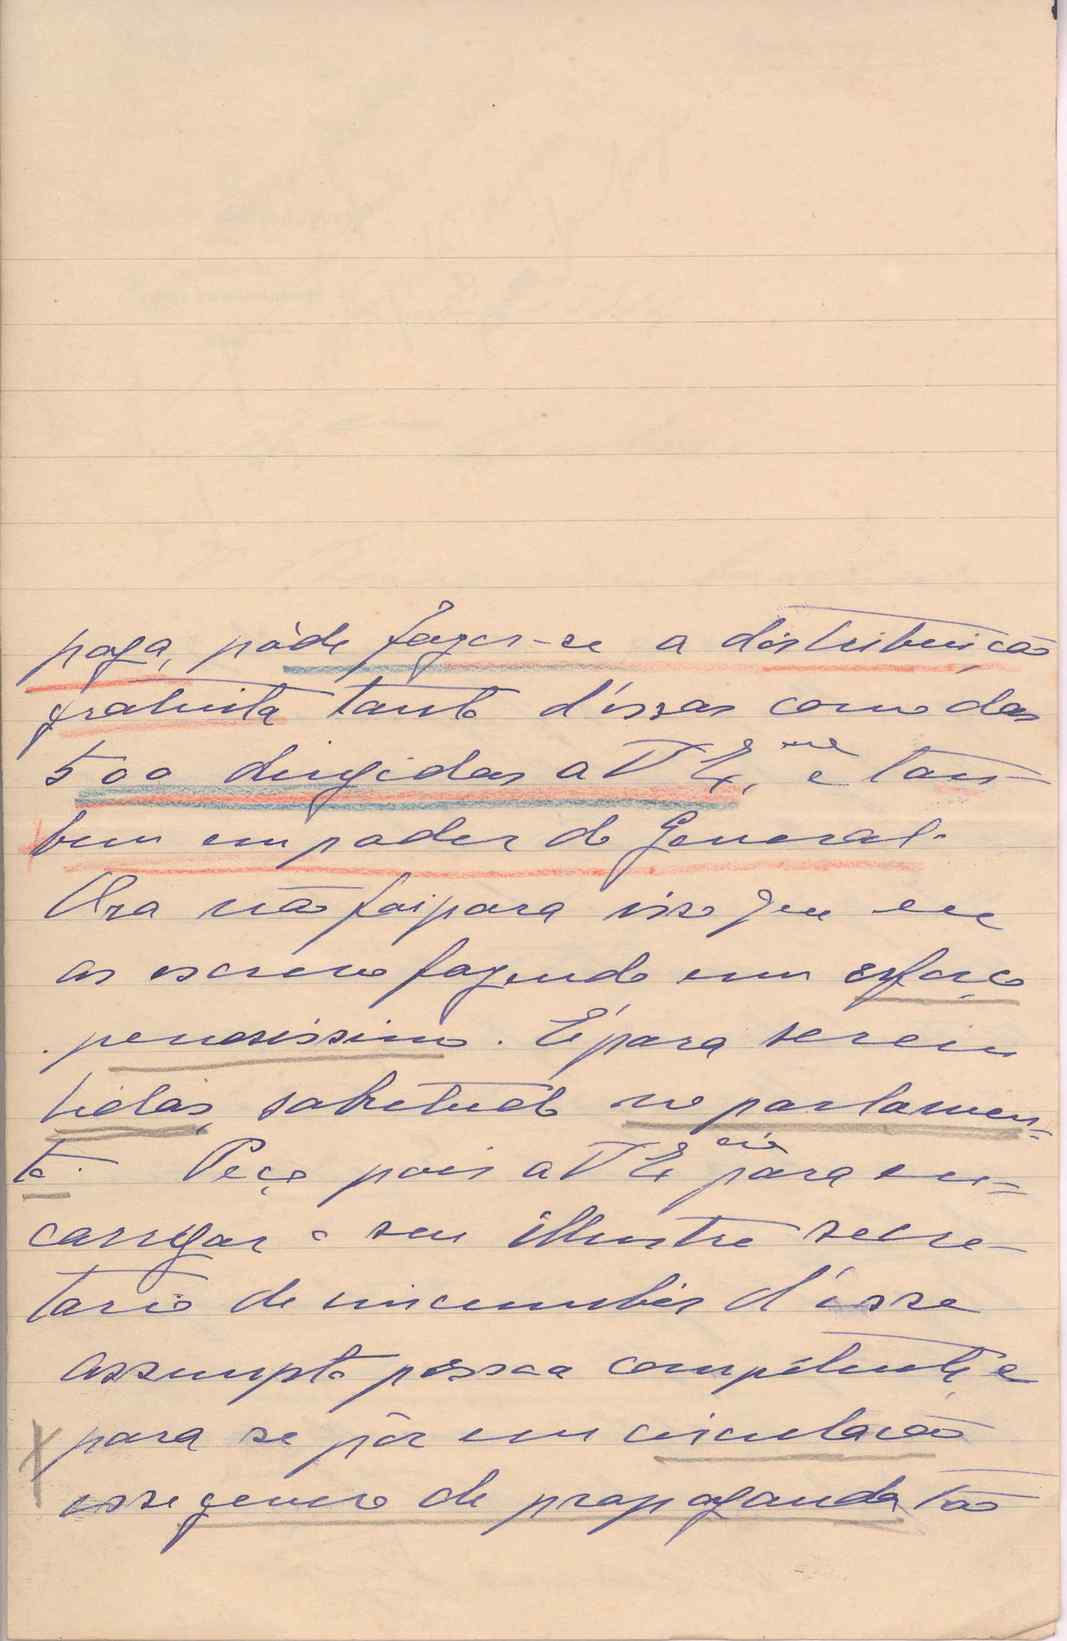 paga, póde fazer-se a distribuição
gratuita tanto d'essas como das
500 dirigidas a V Ex.ma e tam-
bem em poder do General.
Ora não foi para isso que eu
as escrevo fazendo um esforço
penosissimo. É para serem
lidas, sobretudo no parlamen-
to. Peço pois a V Ex cia para en-
carregar o seu illustre secre-
tario de incumbir d'esse
assumpto pessoa competente
para se pôr em circulação
esse genero de propaganda tão